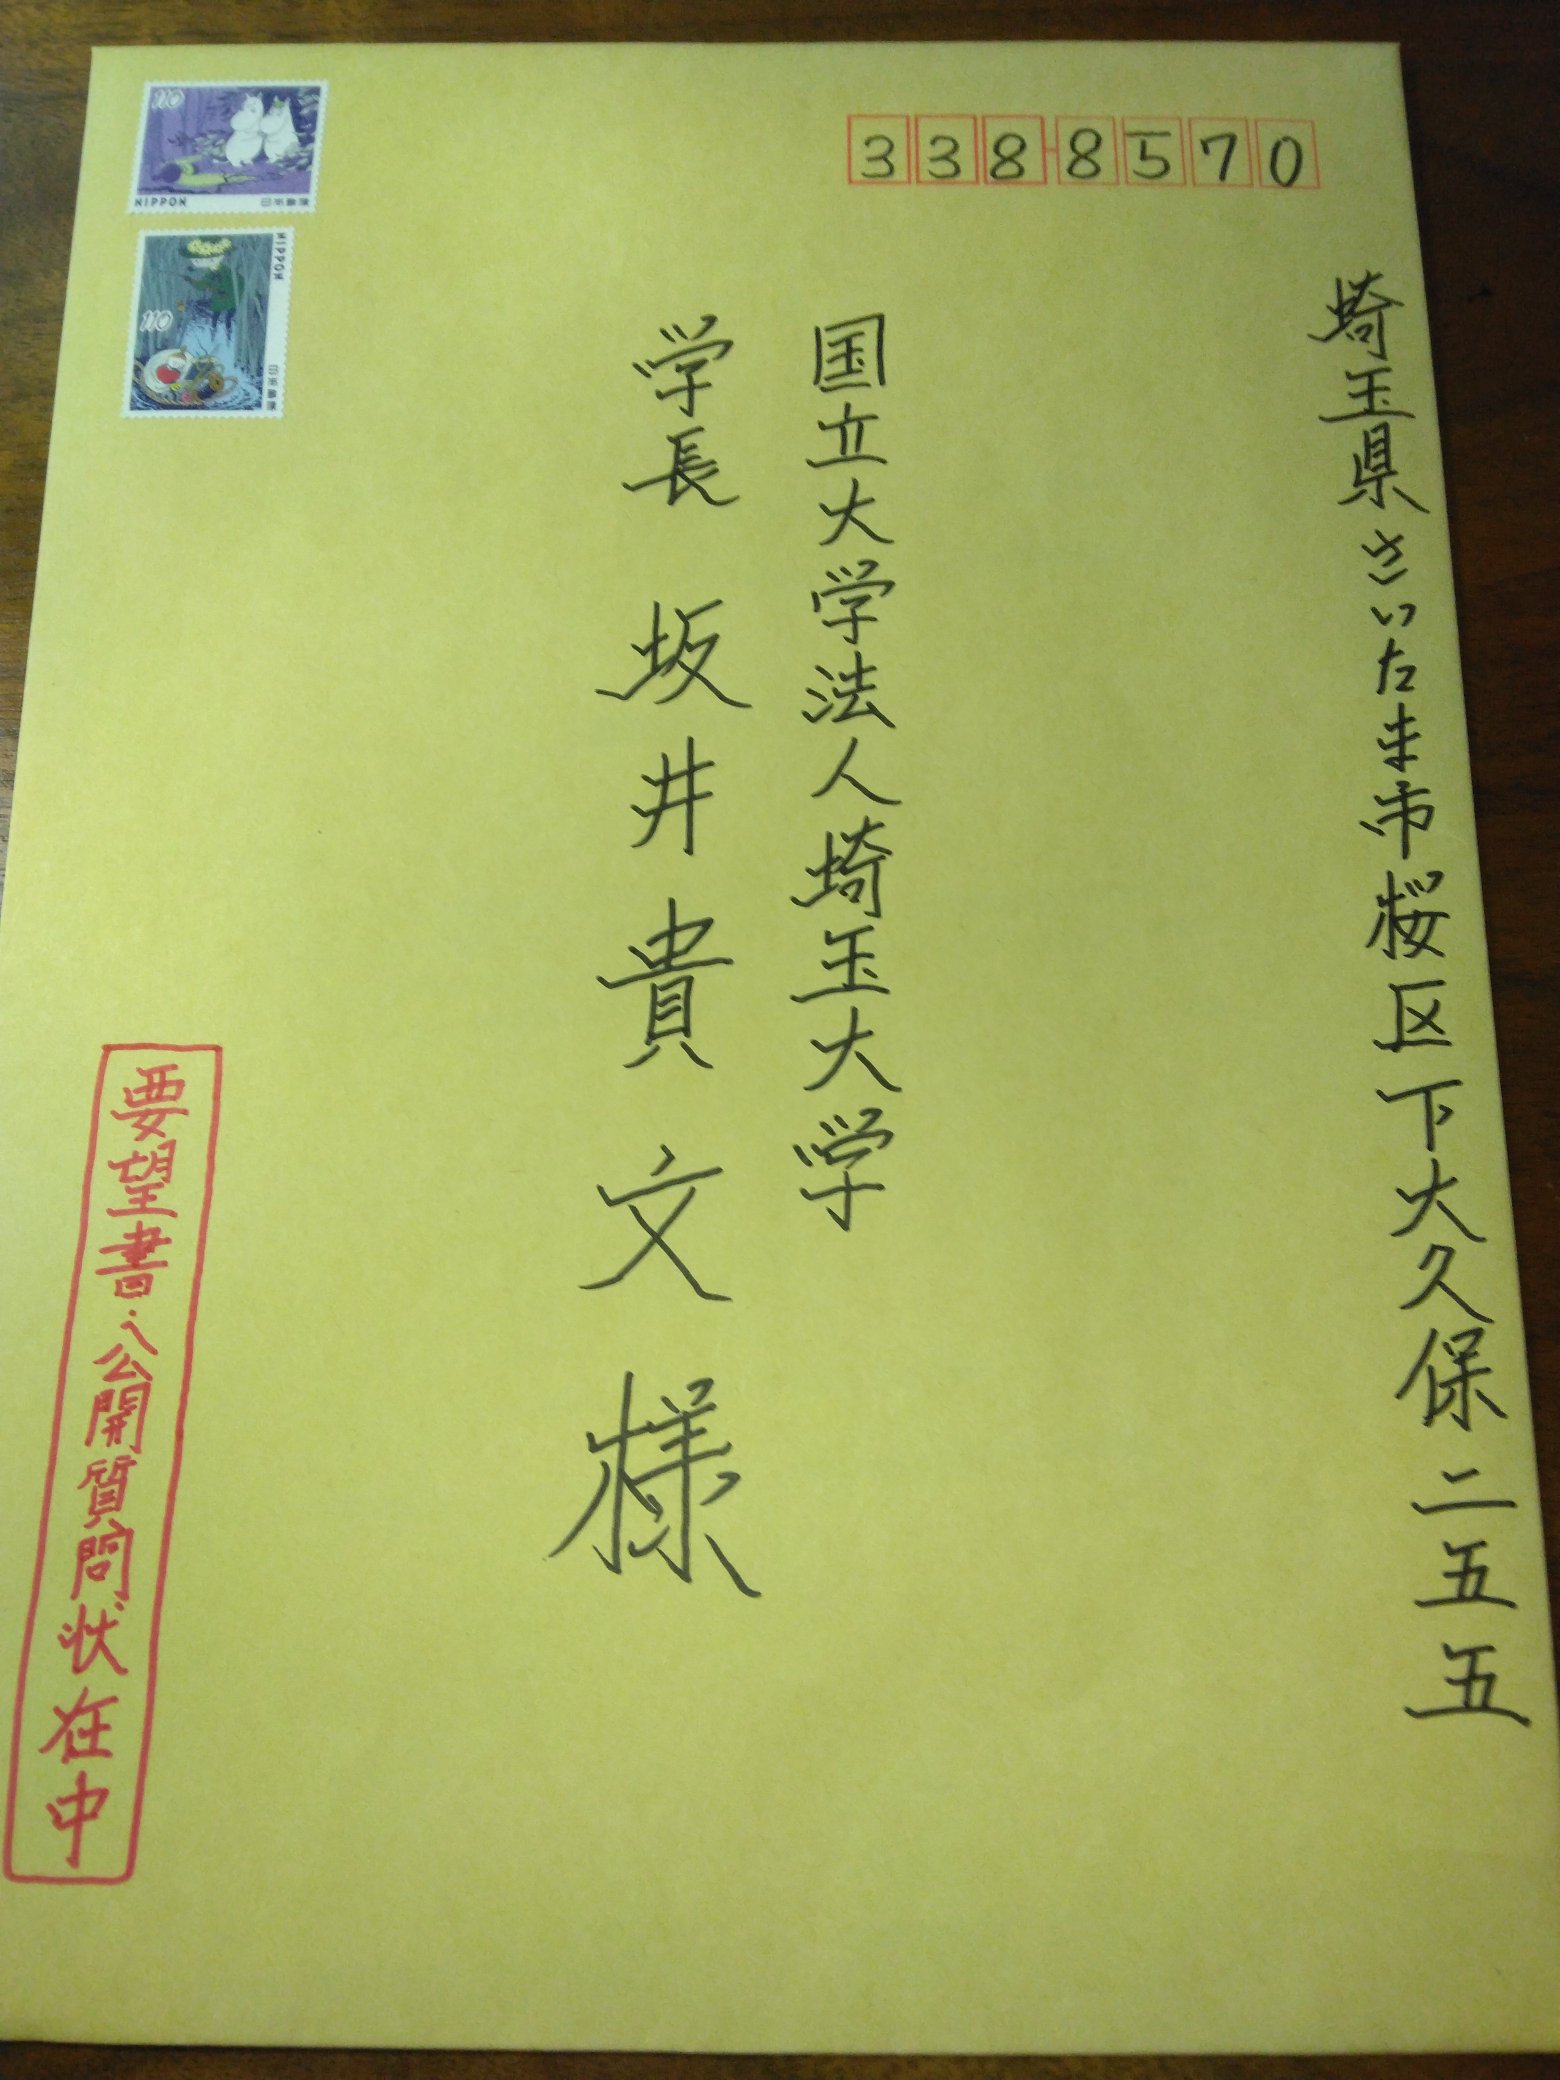 338-8570
埼玉県さいたま市桜区下大久保二五五
国立大学法人埼玉大学
学長 坂井貴文様
110
NIPPON
日本郵便
NIPPON
110
日本郵便
要望書・公開質問状在中